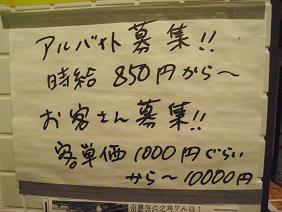 アルバイト募集!!
時給 850円から〜
お客さん募集!!
客単価 1000円ぐらい
から〜10000円